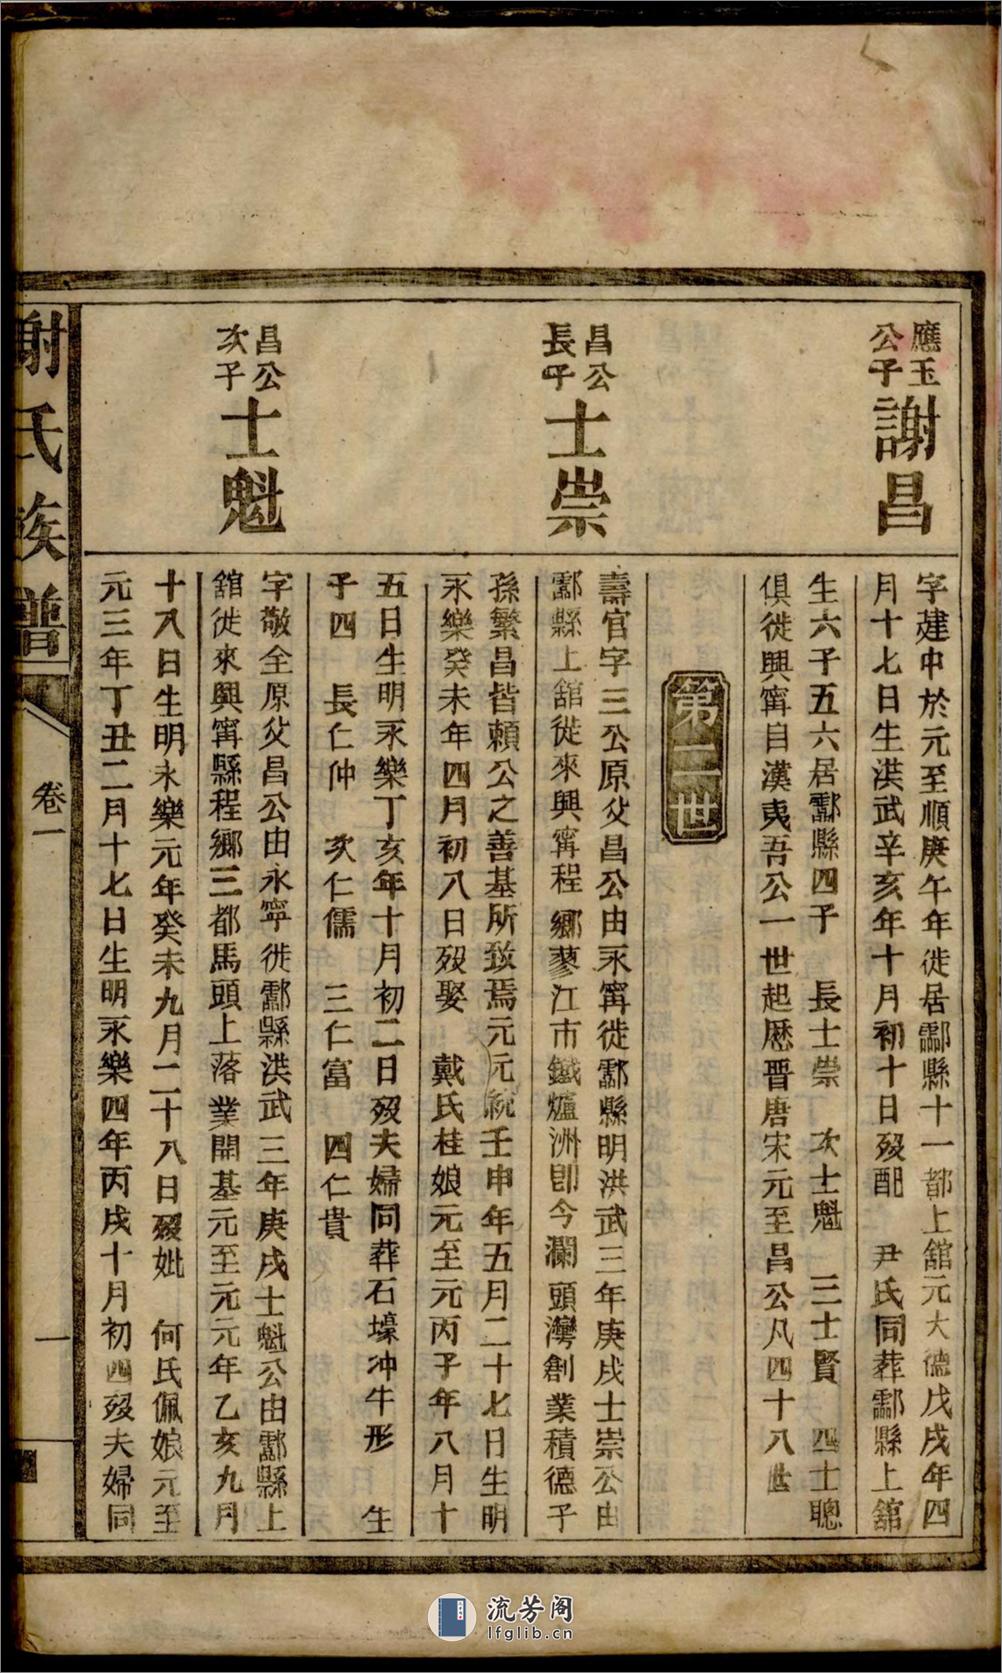 應玉
公子
謝昌
字建中於元至順庚午年徙居酃縣十一都上舘元大德戊戌年四
月十七日生洪武辛亥年十月初十日歿配　尹氏同葬酃縣上舘
生六子五六居酃縣四子　長士崇　次士魁　三士賢　四士聰
俱徙興寧自漢夷吾公一世起歷晋唐宋元至昌公凡四十八世
第二世
昌公
長子
士崇
壽官字三公原父昌公由永寗徙酃縣明洪武三年庚戌士崇公由
酃縣上舘徙來興寗程鄉蓼江市鐵爐洲卽今瀾頭灣創業積德子
孫繁昌皆賴公之善基所致焉元元統壬申年五月二十七日生明
永樂癸未年四月初八日歿娶　戴氏桂娘元至元丙子年八月十
五日生明永樂丁亥年十月初二日歿夫婦同葬石壕冲牛形　生
子四　長仁仲　次仁儒　三仁富　四仁貴
昌公
次子
士魁
字敬全原父昌公由永寧徙酃縣洪武三年庚戌士魁公由酃縣上
舘徙來興寗縣程鄉三都馬頭上落業開基元至元元年乙亥九月
十八日生明永樂元年癸未九月二十八日歿妣　何氏佩娘元至
元三年丁丑二月十七日生明永樂四年丙戌十月初四歿夫婦同
謝氏族譜
卷一
一
流芳阁
lfglib.cn